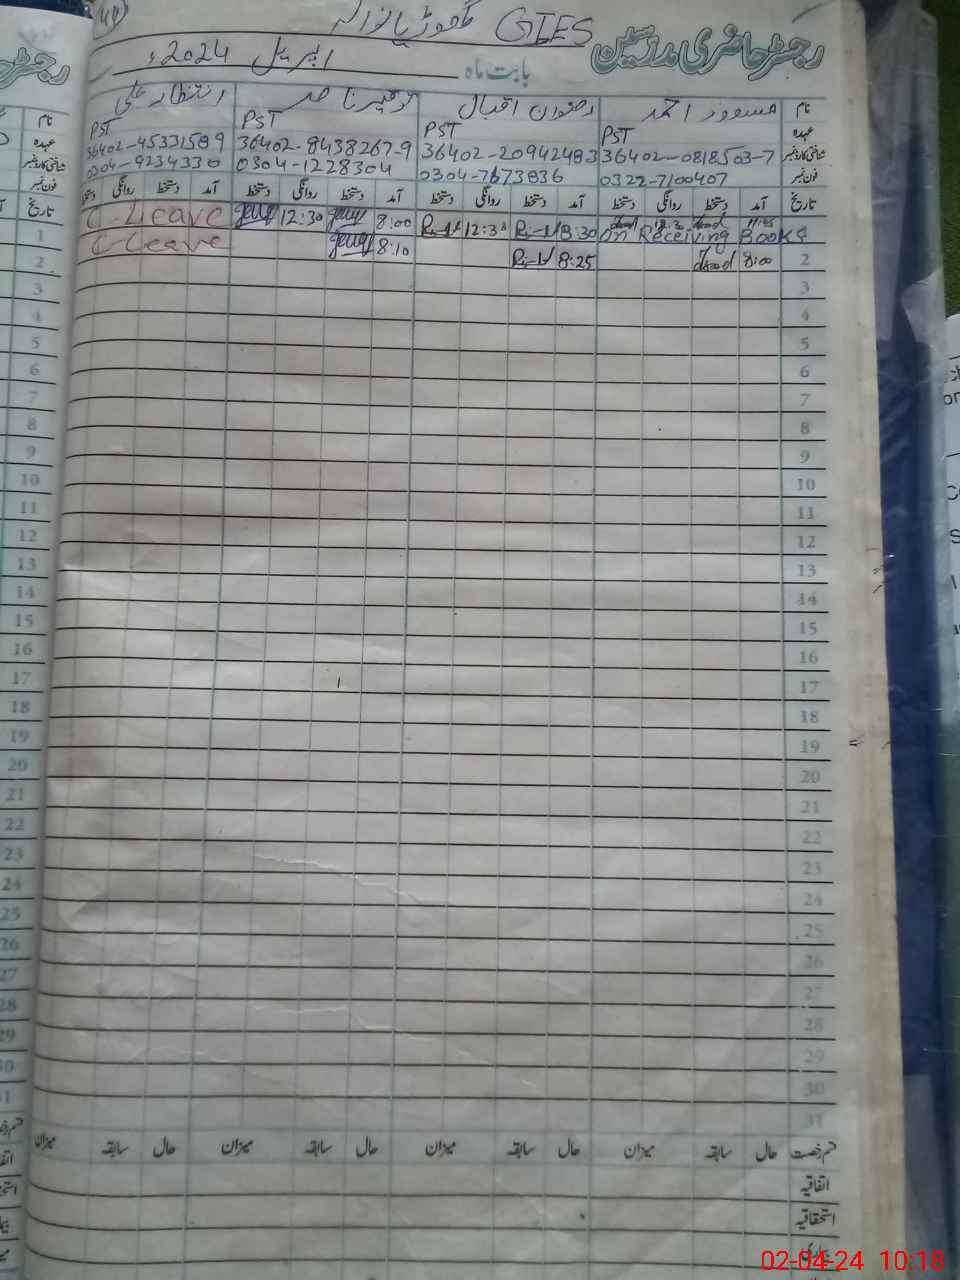 GIES گھوڑیانوالہ
رجسٹر حاضری مدرسین
بابت ماہ اپریل 2024ء
نام مسعود احمد رضوان اقبال ناصر انتظار علی
عہدہ PST PST PST PST
شناختی کارڈ نمبر 36402-0818503-7 36402-20942483 36402-8438267-9 36402-45331589
فون نمبر 0322-7100407 0304-7673836 0304-1228304 0304-9234330
تاریخ آمد دستخط روانگی دستخط آمد دستخط روانگی دستخط آمد دستخط روانگی دستخط آمد دستخط روانگی دستخط
1 11:45 12:30 on Receiving Books 8:30 12:30 8:00 12:30 C-Leave
2 8:00 8:25 8:10 C-Leave
3
4
5
6
7
8
9
10
11
12
13
14
15
16
17
18
19
20
21
22
23
24
25
26
27
28
29
30
31
قسم رخصت حال سابقہ میزان حال سابقہ میزان حال سابقہ میزان حال سابقہ میزان
اتفاقیہ
استحقاقیہ
بیماری
02-04-24 10:18